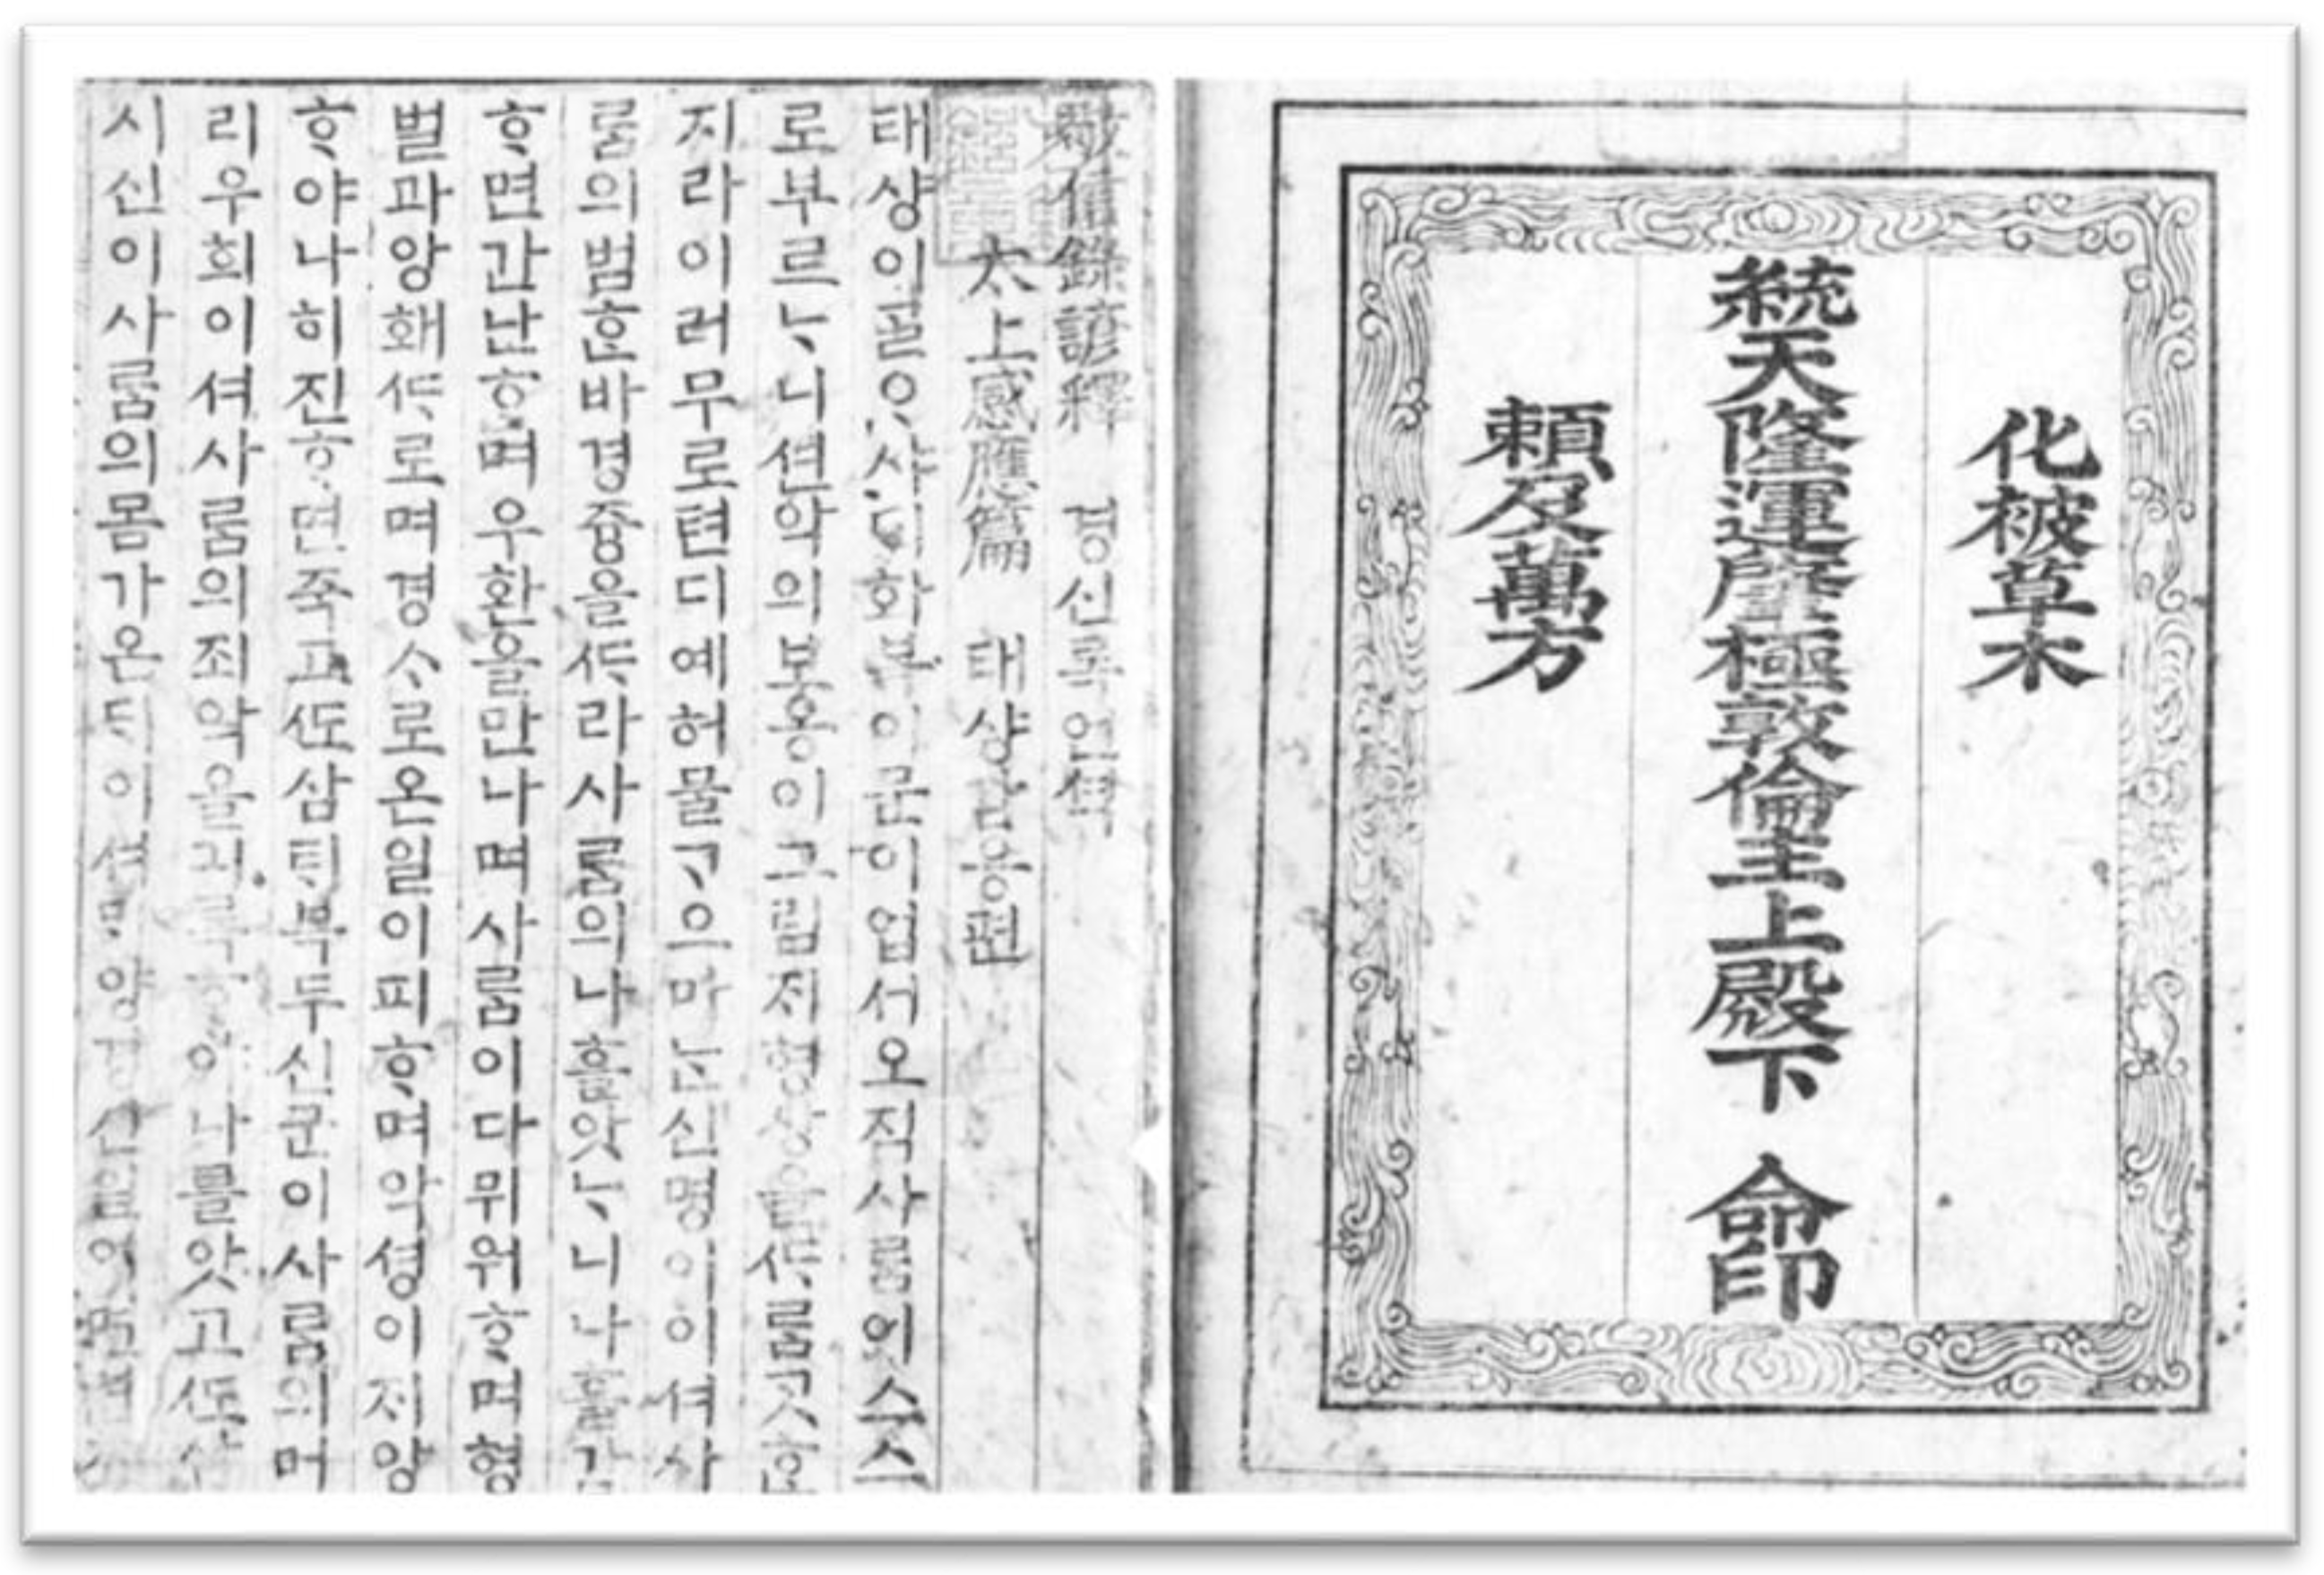 化被草木
統天隆運肇極敦倫主上殿下 命印
賴及萬方
敬信錄諺釋 경신록언셕
太上感應篇 태샹감응편
태샹이ᄀᆞᆯᄋᆞ샤ᄃᆡ화복이문이업서오직사ᄅᆞᆷ이스스
로부르ᄂᆞ니션악의보응이그림재형샹을ᄯᆞ롬ᄀᆞᆺᄒᆞᆫ
지라이러무로텬디예허물ᄀᆞ으마ᄂᆞᆫ신명이이셔사
ᄅᆞᆷ의범ᄒᆞᆫ바경즁을ᄯᆞ라사ᄅᆞᆷ의나흘앗ᄂᆞ니나흘감
ᄒᆞ면간난ᄒᆞ며우환을만나며사ᄅᆞᆷ이다뮈워ᄒᆞ며형
벌과앙홰ᄯᆞ로며경ᄉᆞ로온일이피ᄒᆞ며악셩이ᄌᆡ앙
ᄒᆞ야나히진ᄒᆞ면죽고ᄯᅩ삼ᄐᆡ북두신군이사ᄅᆞᆷ의머
리우희이셔사ᄅᆞᆷ의죄악을긔록ᄒᆞ야나흘앗고ᄯᅩ삼
시신이사ᄅᆞᆷ의몸가온ᄃᆡ이셔ᄆᆡ양경신일이